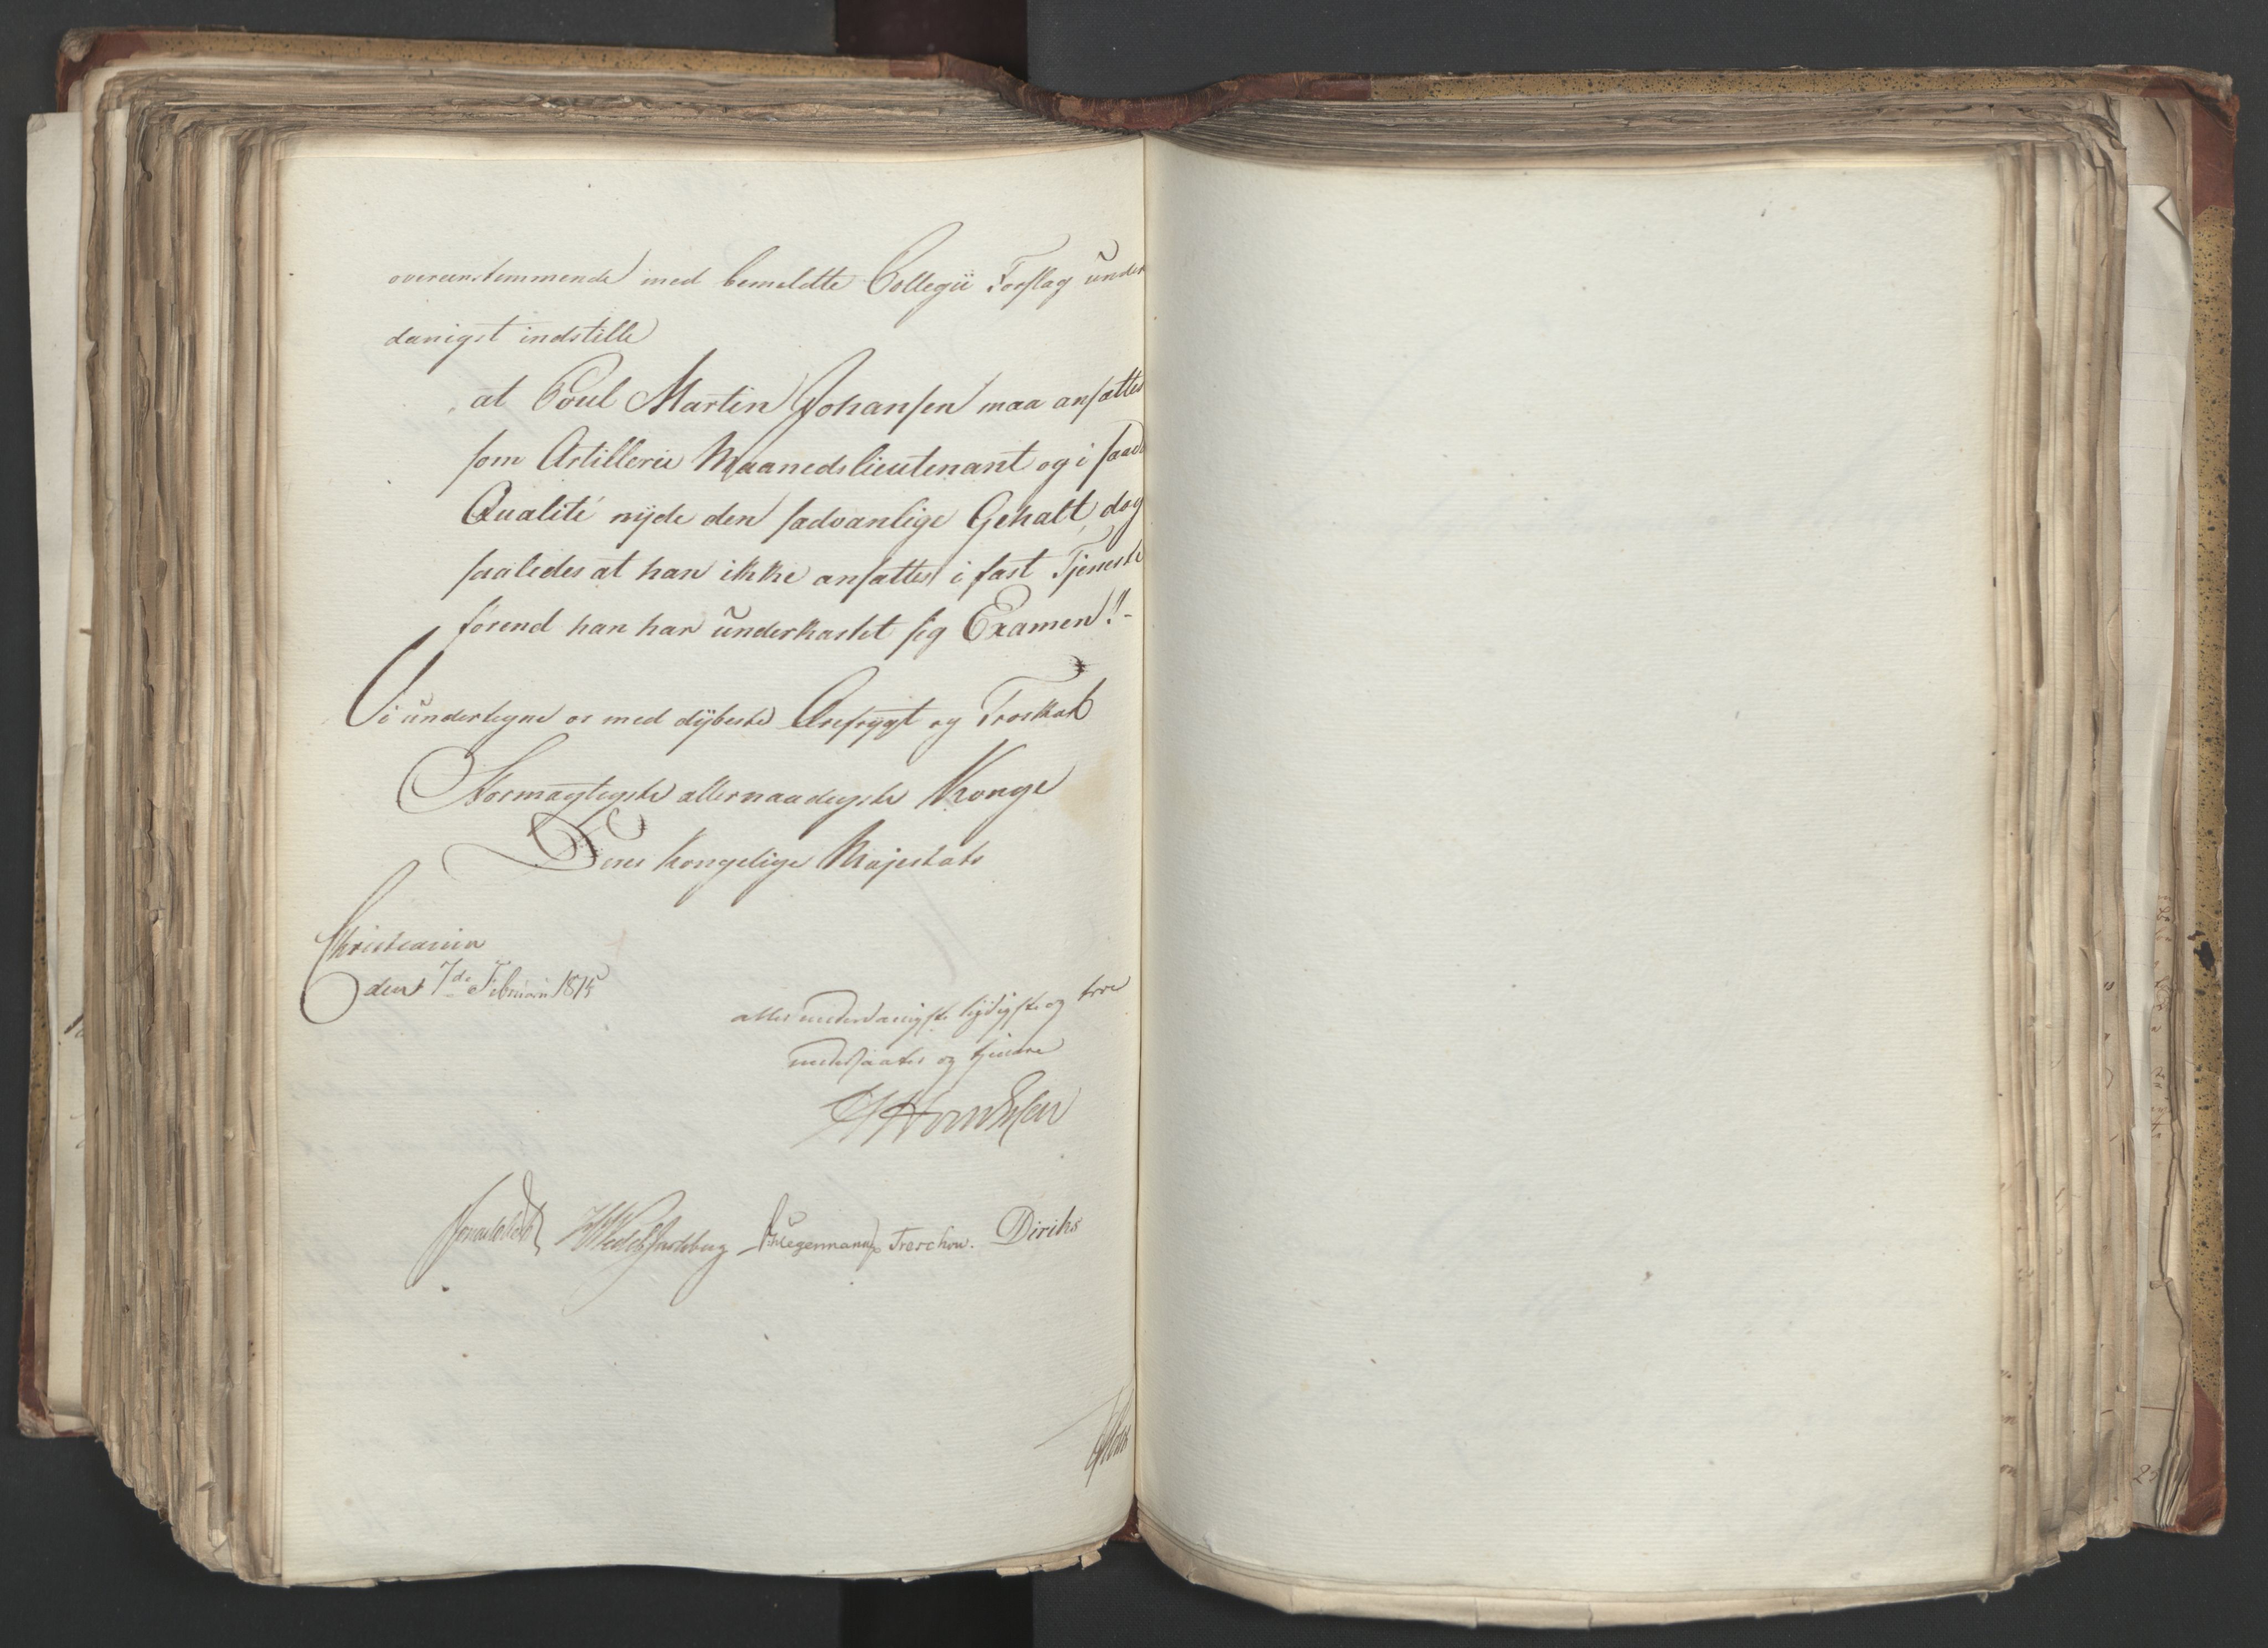 overeenstemmende med bemeldte Collegii Forslag under
danigst indstille
at Poul Martin Johansen maa ansættes
som Artillerie Maanedslieutenant og i saad
Qualité nyde den sædvanlige Gehalt, dog
saaledes at han ikke ansættes i fast Tjeneste
førend han har underkastet sig Examen!!-
Vi undertegne os med dybeste Ærefrygt og Troskab
Stormægtigste allernaadigste Konge
Deres kongelige Majestæts
Christiania
den 7de Februarii 1815
allerunderdanigste lydigste og troe
undersaatter og tjenere
Sommerhielm HWedel Jarlsberg Hegermann Treschow. Diriks